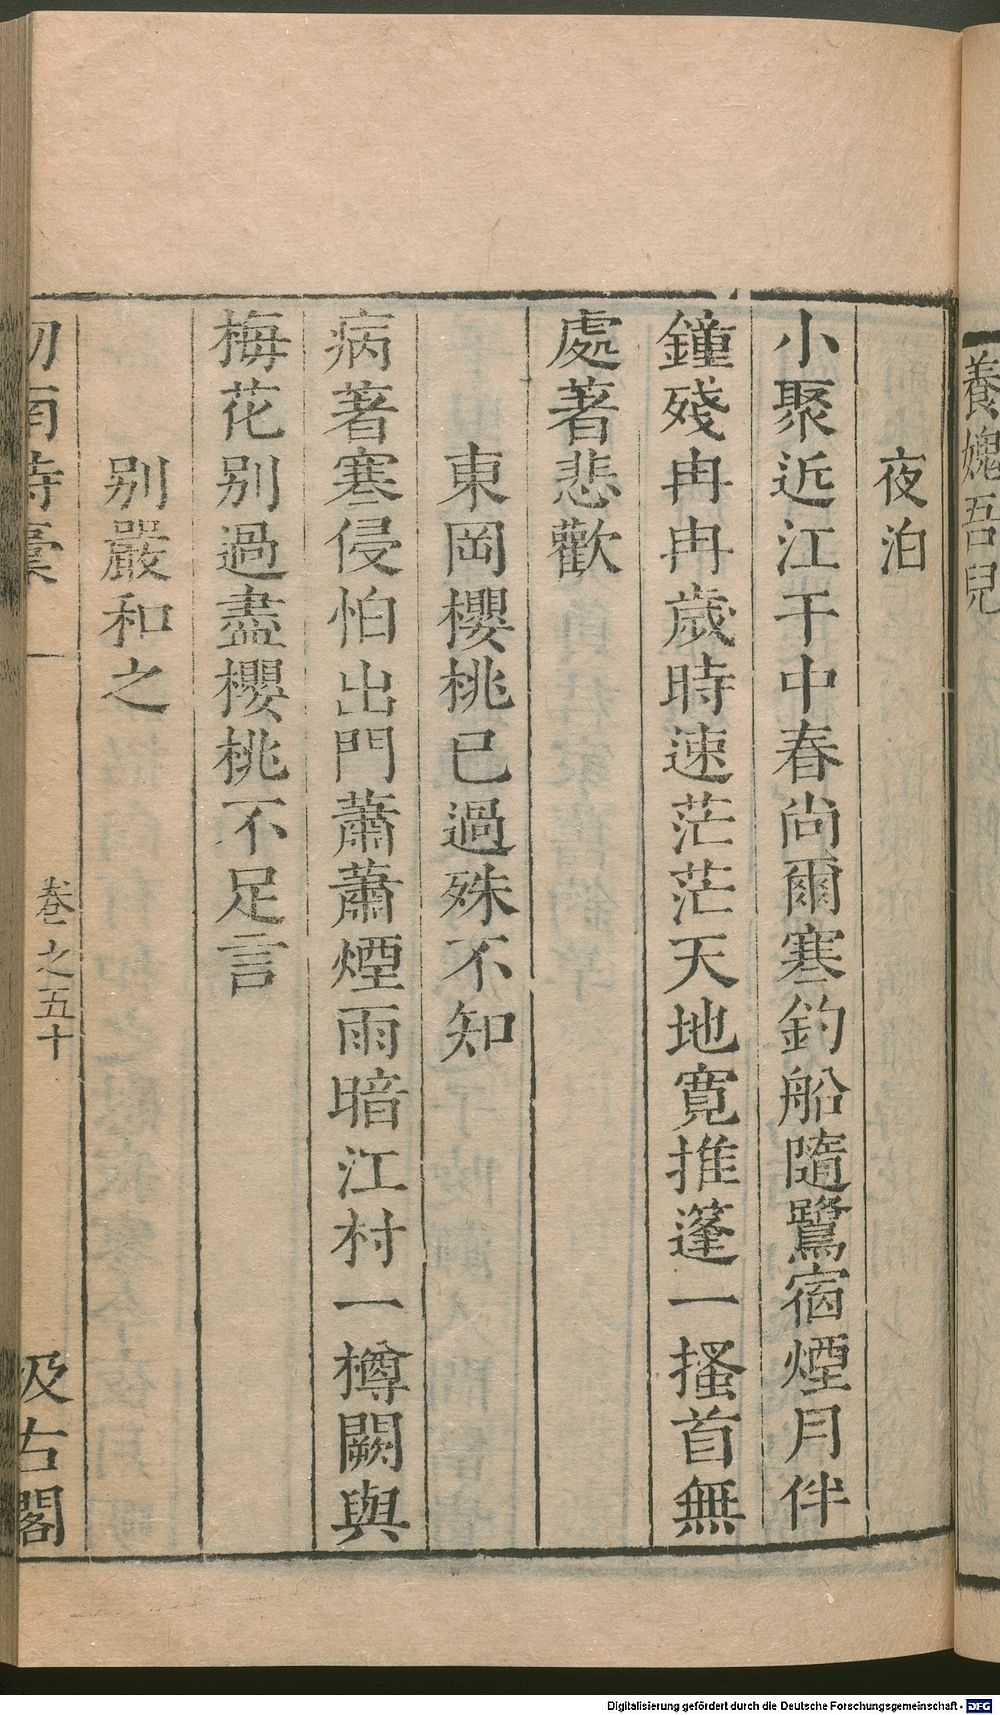 養媿吾兒
夜泊
小聚近江干中春尚爾寒釣船隨鷺宿煙月伴
鐘殘冉冉歲時速茫茫天地寬推篷一搔首無
處著悲歡
東岡櫻桃已過殊不知
病著寒侵怕出門蕭蕭煙雨暗江村一樽闕與
梅花别過盡櫻桃不足言
别嚴和之
南詩稾 卷之五十 汲古閣
Digitalisierung gefördert durch die Deutsche Forschungsgemeinschaft - DFG